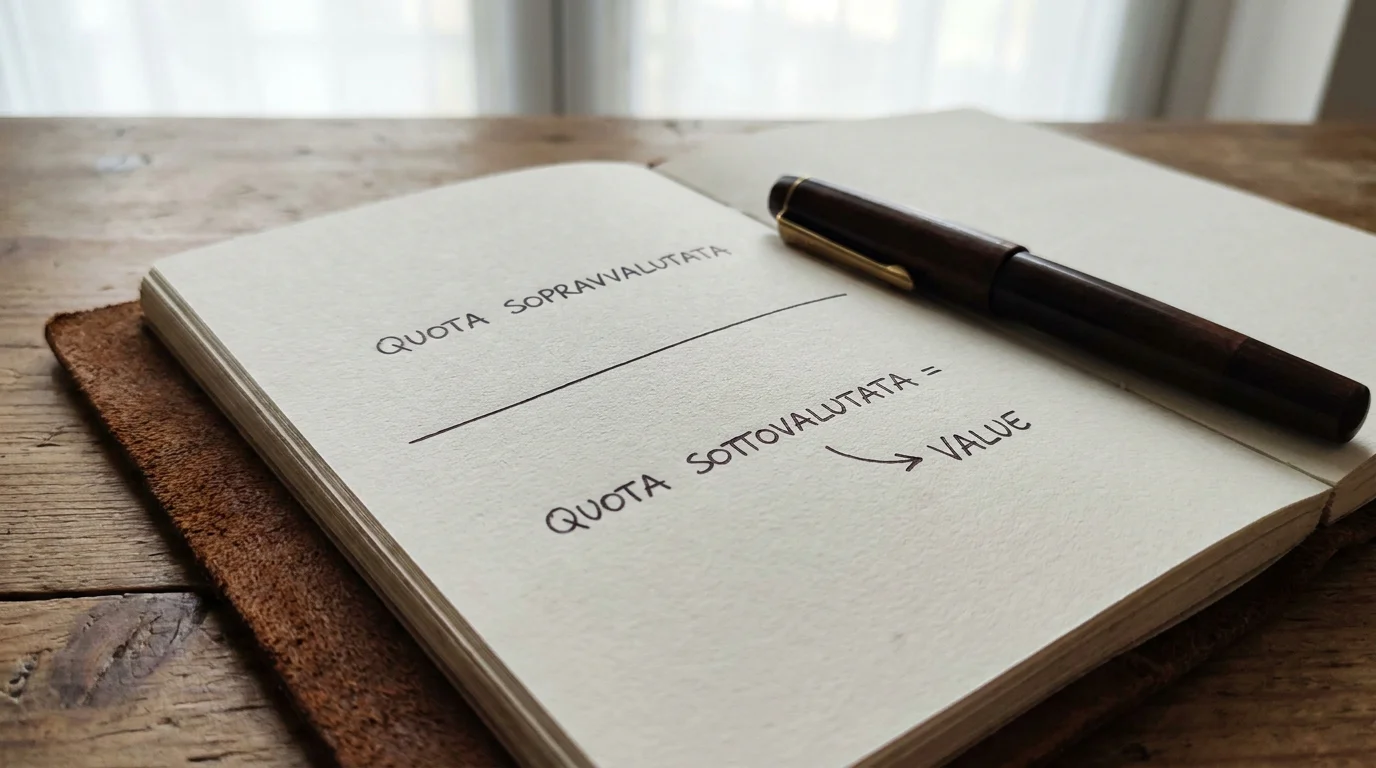 QUOTA SOPRAVVALUTATA
QUOTA SOTTOVALUTATA =
→ VALUE